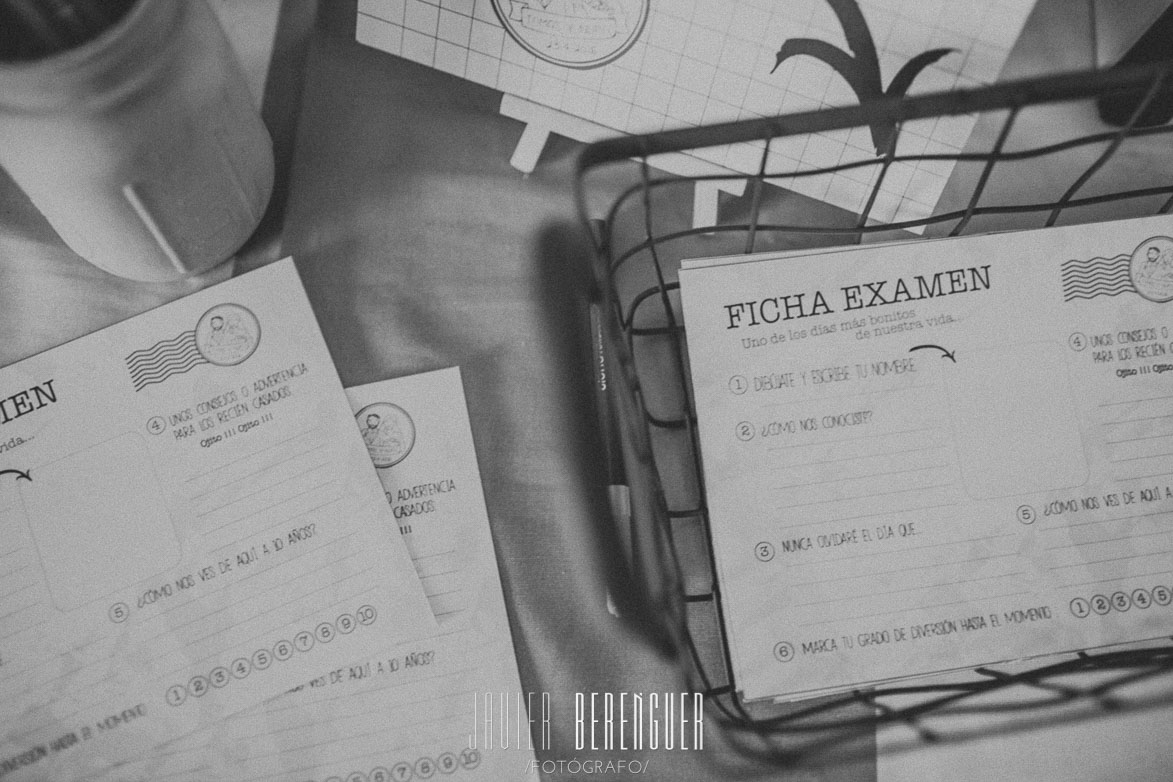 FICHA EXAMEN
Uno de los días más bonitos
de nuestra vida...
1 DIBÚJATE Y ESCRIBE TU NOMBRE
2 ¿CÓMO NOS CONOCISTE?
3 NUNCA OLVIDARÉ EL DÍA QUE...
4 UNOS CONSEJOS O
PARA LOS RECIÉN
Ojito !!! Ojito
5 ¿CÓMO NOS VES DE AQUÍ A
6 MARCA TU GRADO DE DIVERSIÓN HASTA EL MOMENTO 1 2 3 4 5
MEN
vida...
4 UNOS CONSEJOS O ADVERTENCIA
PARA LOS RECIÉN CASADOS.
Ojito !!! Ojito !!!
5 ¿CÓMO NOS VES DE AQUÍ A 10 AÑOS?
1 2 3 4 5 6 7 8 9 10
DIVERSIÓN HASTA EL MOMENTO
O ADVERTENCIA
CASADOS.
!!!
VES DE AQUÍ A 10 AÑOS?
4 5 6 7 8 9 10
JAVIER BERENGUER
/FOTÓGRAFO/